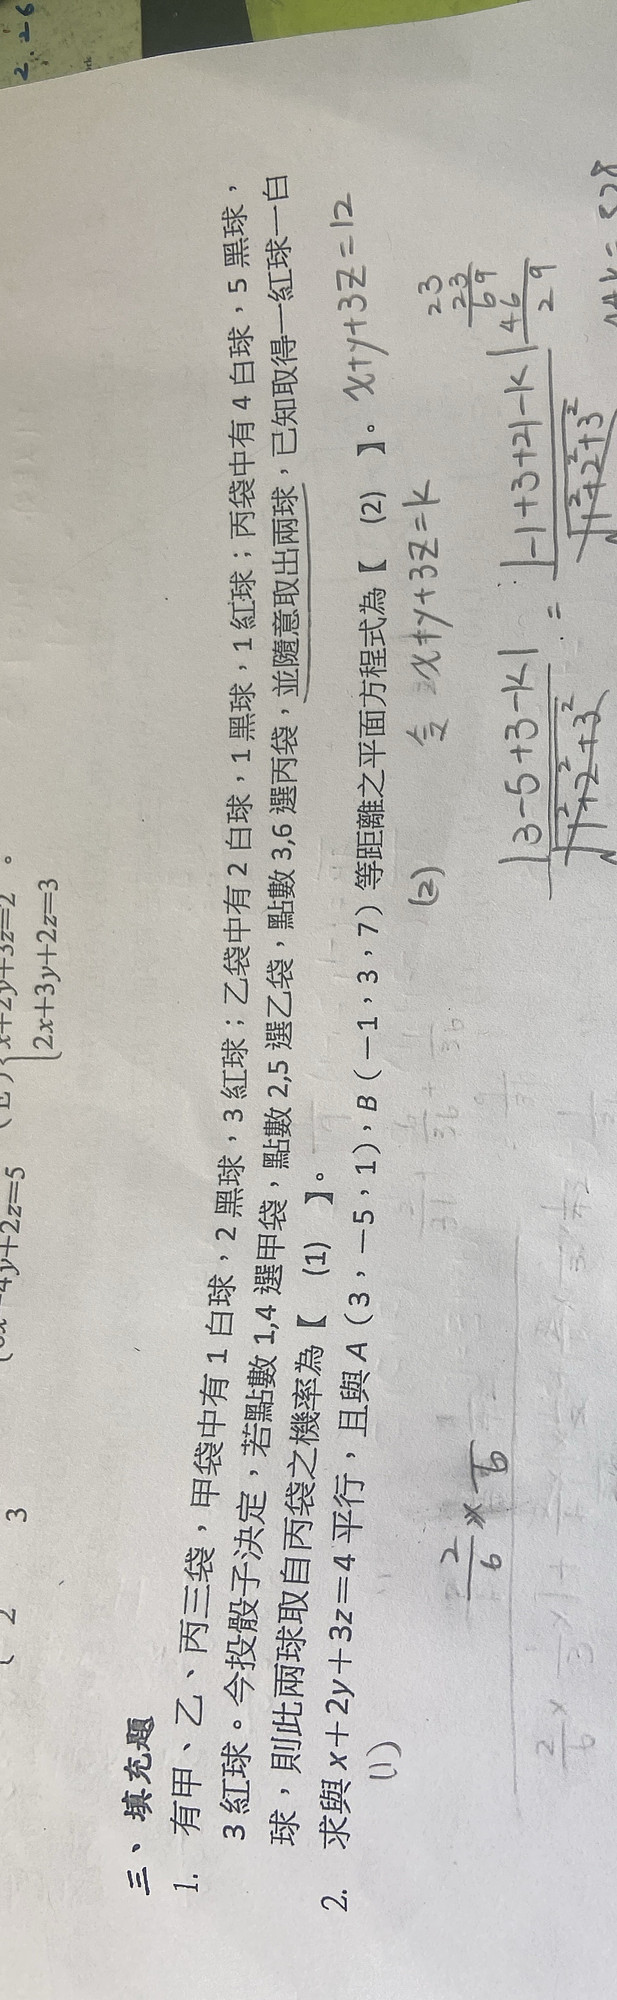 2.26
x+2y+3z=2
2x+3y+2z=3 。
4y+2z=5
2 3
三、填充題
1. 有甲、乙、丙三袋，甲袋中有 1 白球，2 黑球，3 紅球；乙袋中有 2 白球，1 黑球，1 紅球；丙袋中有 4 白球，5 黑球，
3 紅球。今投骰子決定，若點數 1,4 選甲袋，點數 2,5 選乙袋，點數 3,6 選丙袋，並隨意取出兩球，已知取得一紅球一白
球，則此兩球取自丙袋之機率為【 (1) 】。
2. 求與 x＋2y＋3z＝4 平行，且與 A（3，－5，1），B（－1，3，7）等距離之平面方程式為【 (2) 】。 x+y+3z=12
(1)
2/6 ×
(2) 令 x+y+3z=k
|3-5+3-k| / √1²+2²+3² = |-1+3+21-k| / √1²+2²+3²
23
23
69
46
29